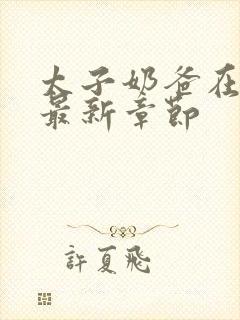 太子奶爸在
最新章節
許夏飛